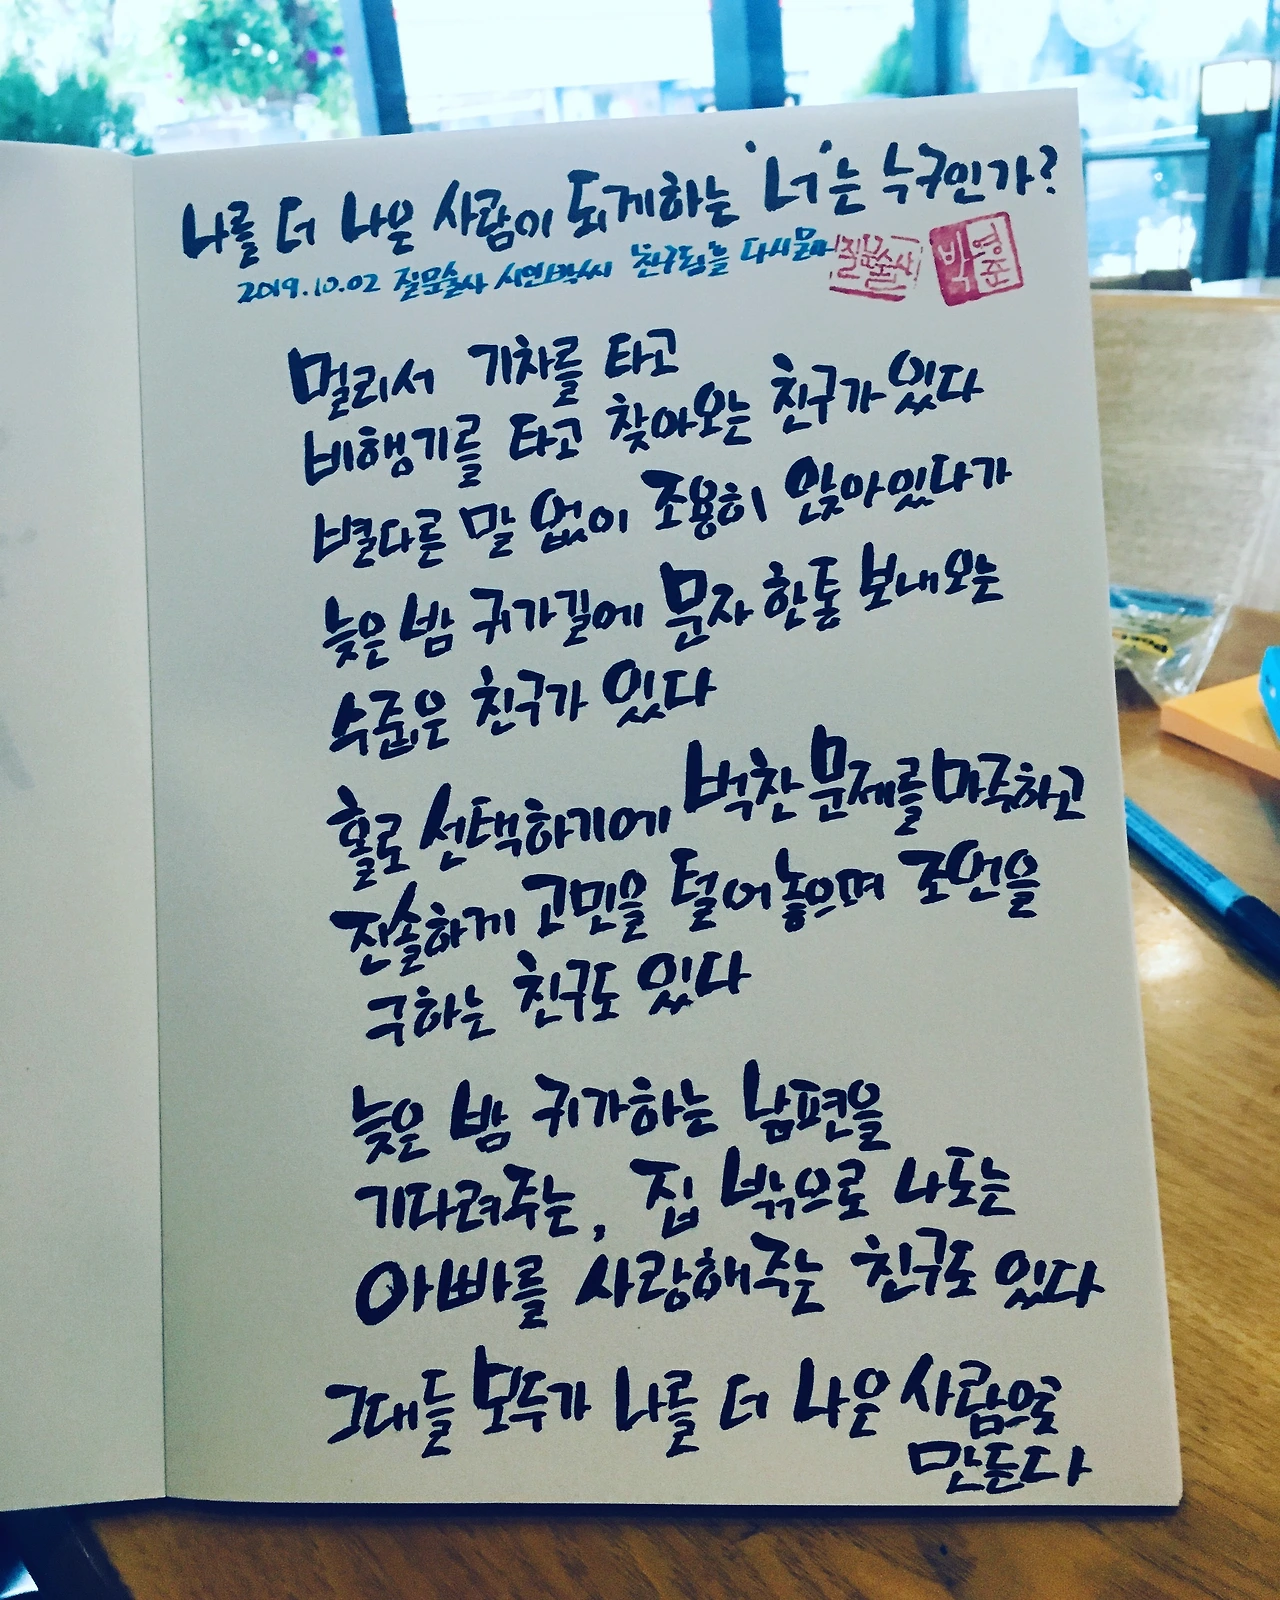 나를 더 나은 사람이 되게하는 '너'는 누구인가?
2019.10.02 질문술사 시인박씨 '친구됨'을 다시묻다
질문술사
박영준
멀리서 기차를 타고
비행기를 타고 찾아오는 친구가 있다
별다른 말 없이 조용히 앉아있다가
늦은 밤 귀가길에 문자 한통 보내오는
수줍은 친구가 있다
홀로 선택하기에 벅찬 문제를 마주하고
진솔하게 고민을 털어놓으며 조언을
구하는 친구도 있다
늦은 밤 귀가하는 남편을
기다려주는, 집 밖으로 나도는
아빠를 사랑해주는 친구도 있다
그대들 모두가 나를 더 나은 사람으로
만든다